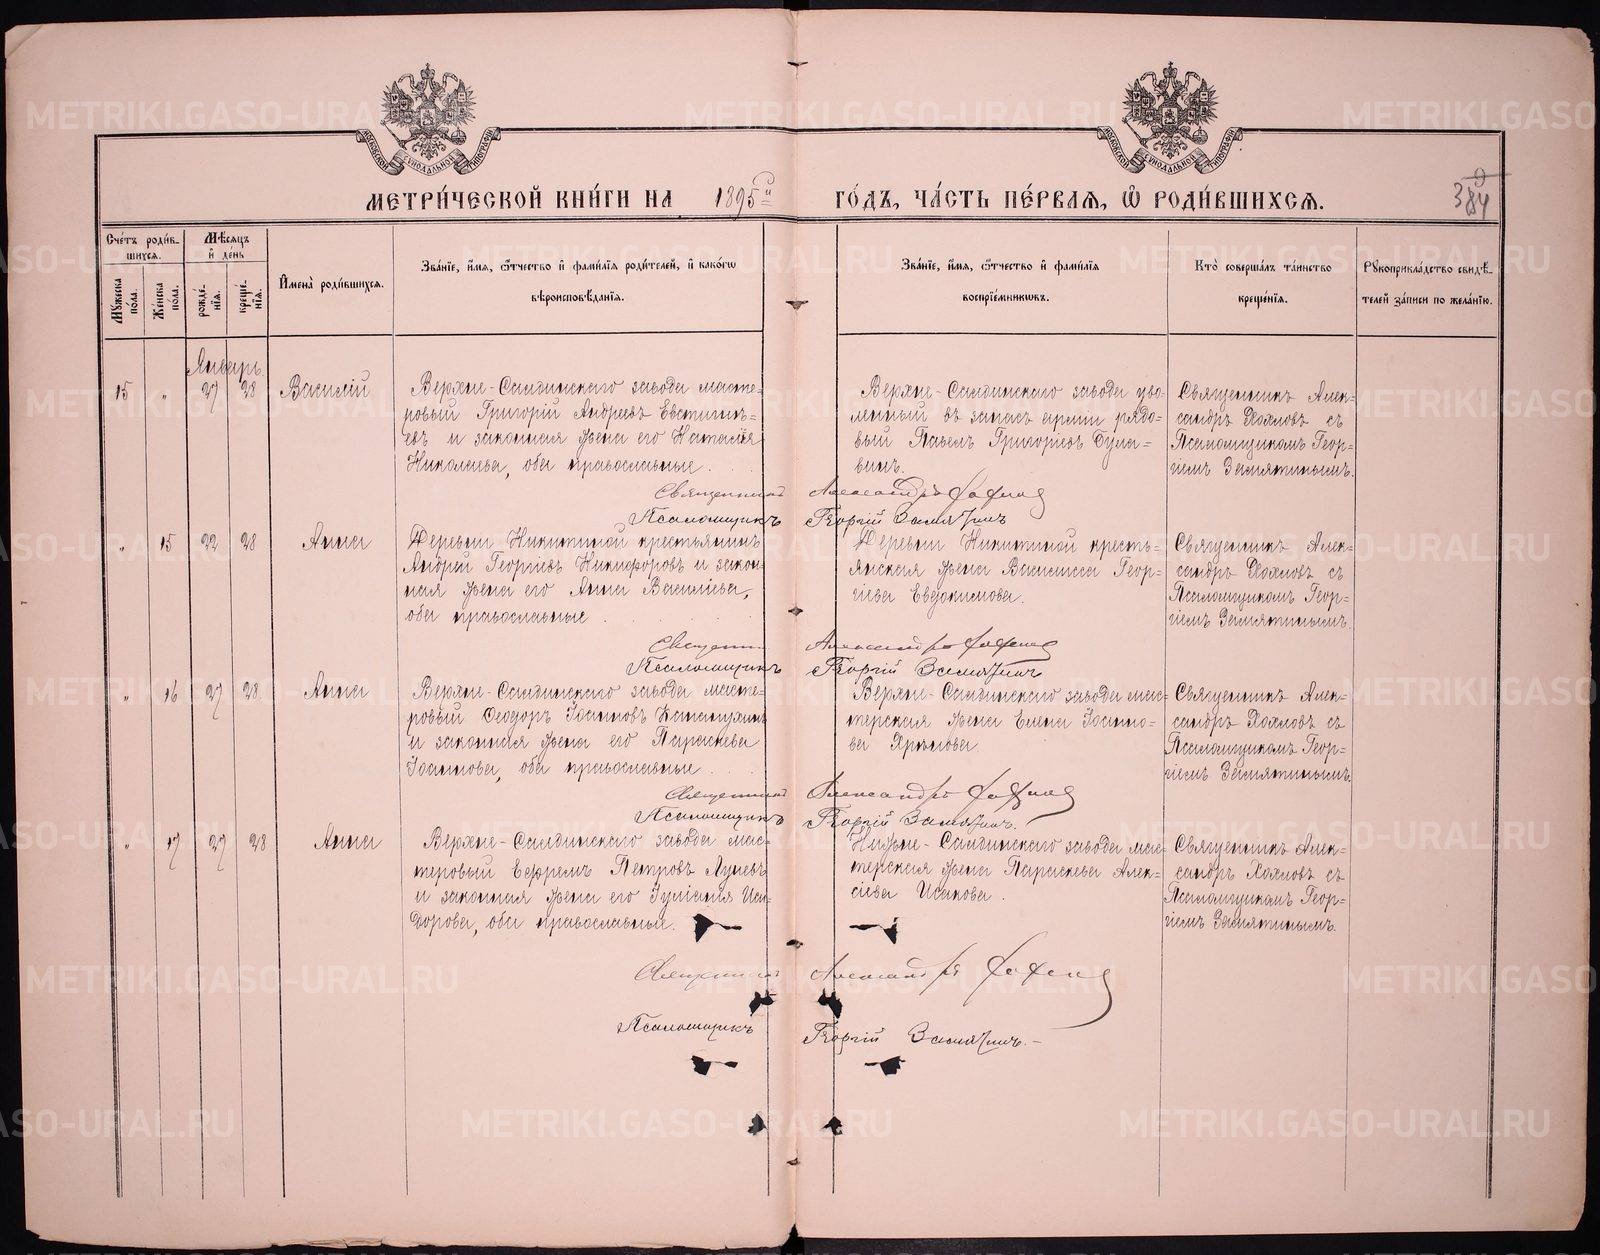 МЕТРИ́ЧЕСКОЙ КНИ́ГИ НА 1895й ГО́ДЪ, ЧА́СТЬ ПЕ́РВАѦ, Ѿ РОДИ́ВШИХСѦ.
384
Сче́тъ роди́в-
шихсѧ.
Мѣ́сѧцъ
и҆ де́нь
Мꙋ́жеска
по́ла.
Же́нска
по́ла.
рожде́-
нїѧ.
креще́-
нїѧ.
И҆мена̀ роди́вшихсѧ.
Зва́нїе, и҆́мѧ, ѻ҆́тчество и҆ фами́лїѧ роди́телей, и҆ како́гѡ
вѣроисповѣ́данїѧ.
Зва́нїе, и҆́мѧ, ѻ҆́тчество и҆ фами́лїѧ
воспрїе́мникѡвъ.
Кто̀ соверша́лъ та́инство
креще́нїѧ.
Рꙋкоприкла́дство свидѣ́-
телей за́писи по жела́нїю.
Январь.
15 " 27 28 Василій
Верхне-Салдинскаго завода масте-
ровый Григорій Андреевъ Евстигнѣ-
евъ и законная жена его Наталія
Николаева, оба православные.
Верхне-Салдинскаго завода уво-
ленный въ запасъ арміи рядо-
вый Павелъ Григорьевъ Була-
винъ.
Священникъ Алек-
сандръ Хохловъ съ
Псаломщикомъ Геор-
гіемъ Замятинымъ.
Священникъ Александръ
Псаломщикъ Георгій Замятинъ
" 15 22 28 Анна
Деревни Никитиной крестьянинъ
Андрей Георгіевъ Никифоровъ и закон-
ная жена его Анна Василіева,
оба православные
Деревни Никитиной кресть-
янская жена Василисса Геор-
гіева Евдокимова.
Священникъ Алек-
сандръ Хохловъ съ
Псаломщикомъ Геор-
гіемъ Замятинымъ.
Священни Александръ
Псаломщикъ Георгій Замятинъ
" 16 27 28 Анна
Верхне-Салдинскаго завода масте-
ровый Ѳеодоръ Іоанновъ
и законная жена его Параскева
Іоаннова, оба православные.
Верхне-Салдинскаго завода мас-
терская жена Елена Іоанно-
ва
Священникъ Алек-
сандръ Хохловъ съ
Псаломщикомъ Геор-
гіемъ Замятинымъ.
Священникъ Александръ
Псаломщикъ Георгій Замятинъ.
" 17 27 28 Анна
Верхне-Салдинскаго завода мас-
теровый Ефремъ Петровъ
и законная жена его Іуліанія Иси-
дорова, оба православные.
Нижне-Салдинскаго завода мас-
терская жена Параскева Алек-
сіева Исакова.
Священникъ Алек-
сандръ Хохловъ съ
Псаломщикомъ Геор-
гіемъ Замятинымъ.
Священникъ Александръ
Псаломщикъ Георгій Замятинъ.